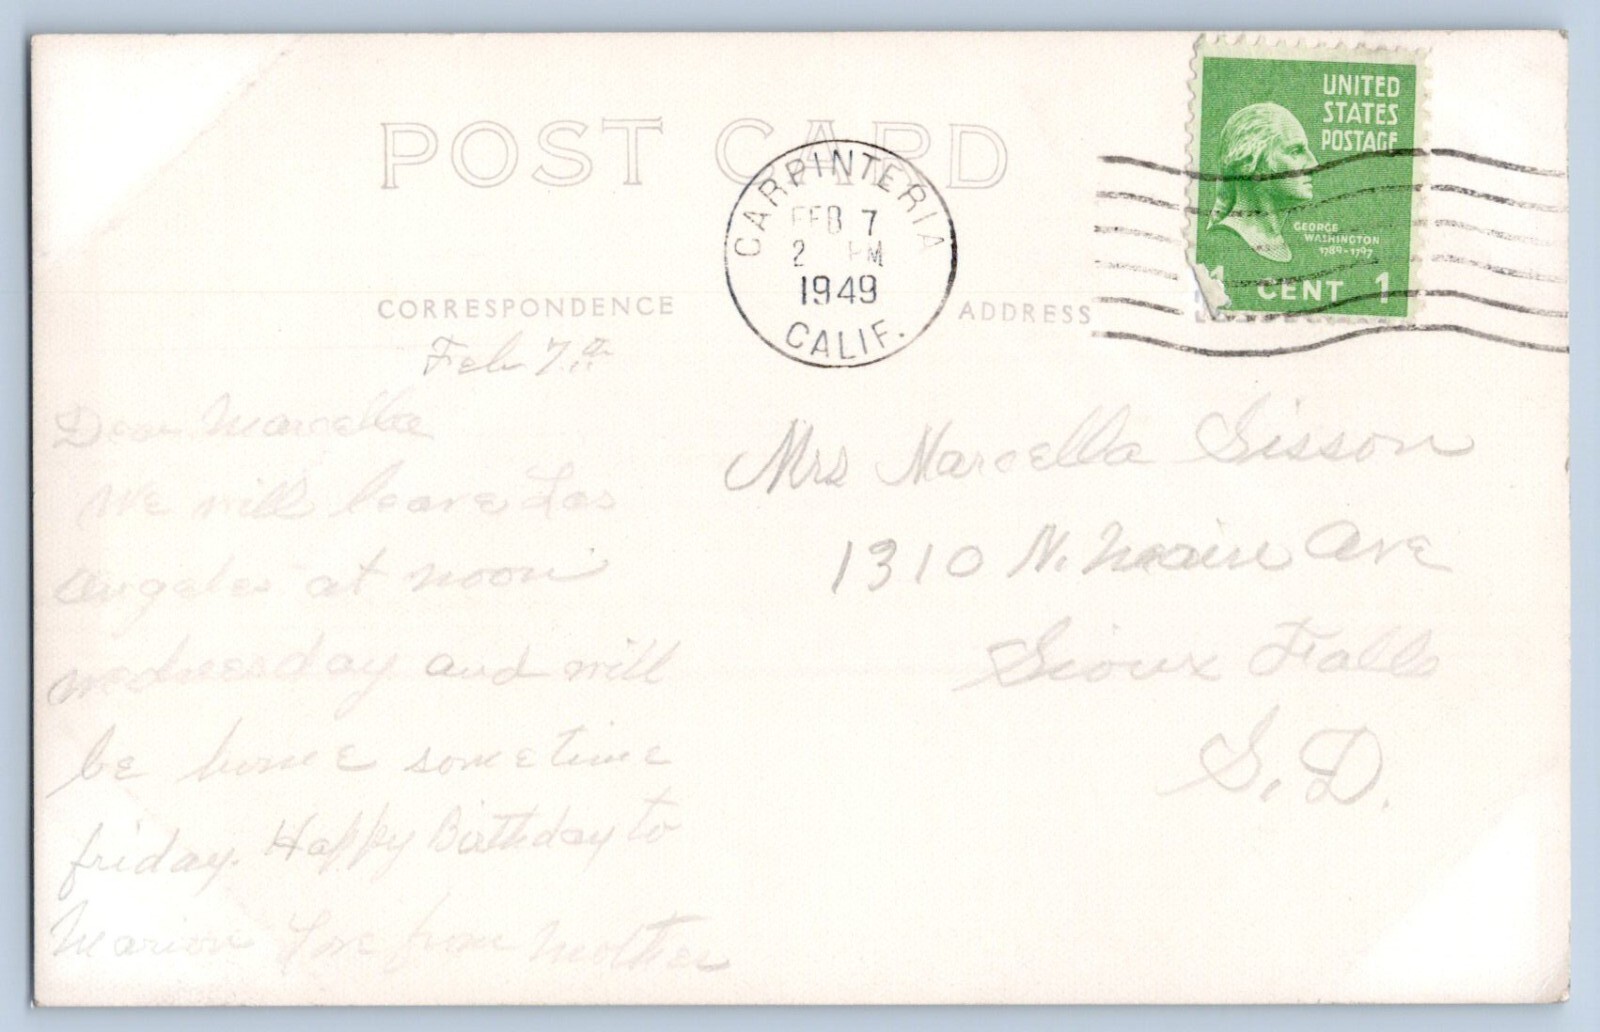 POST CARD
CARPINTERIA
FEB 7
2 PM
1949
CALIF.
UNITED
STATES
POSTAGE
GEORGE
WASHINGTON
1789-1797
1 CENT 1
CORRESPONDENCE
ADDRESS
Feb 7th
Dear Marcella
We will leave Los
Angeles at noon
wednesday and will
be home sometime
friday. Happy Birthday to
Marion Love from Mother
Mrs Marcella Sisson
1310 N. Main Ave
Sioux Falls
S. D.